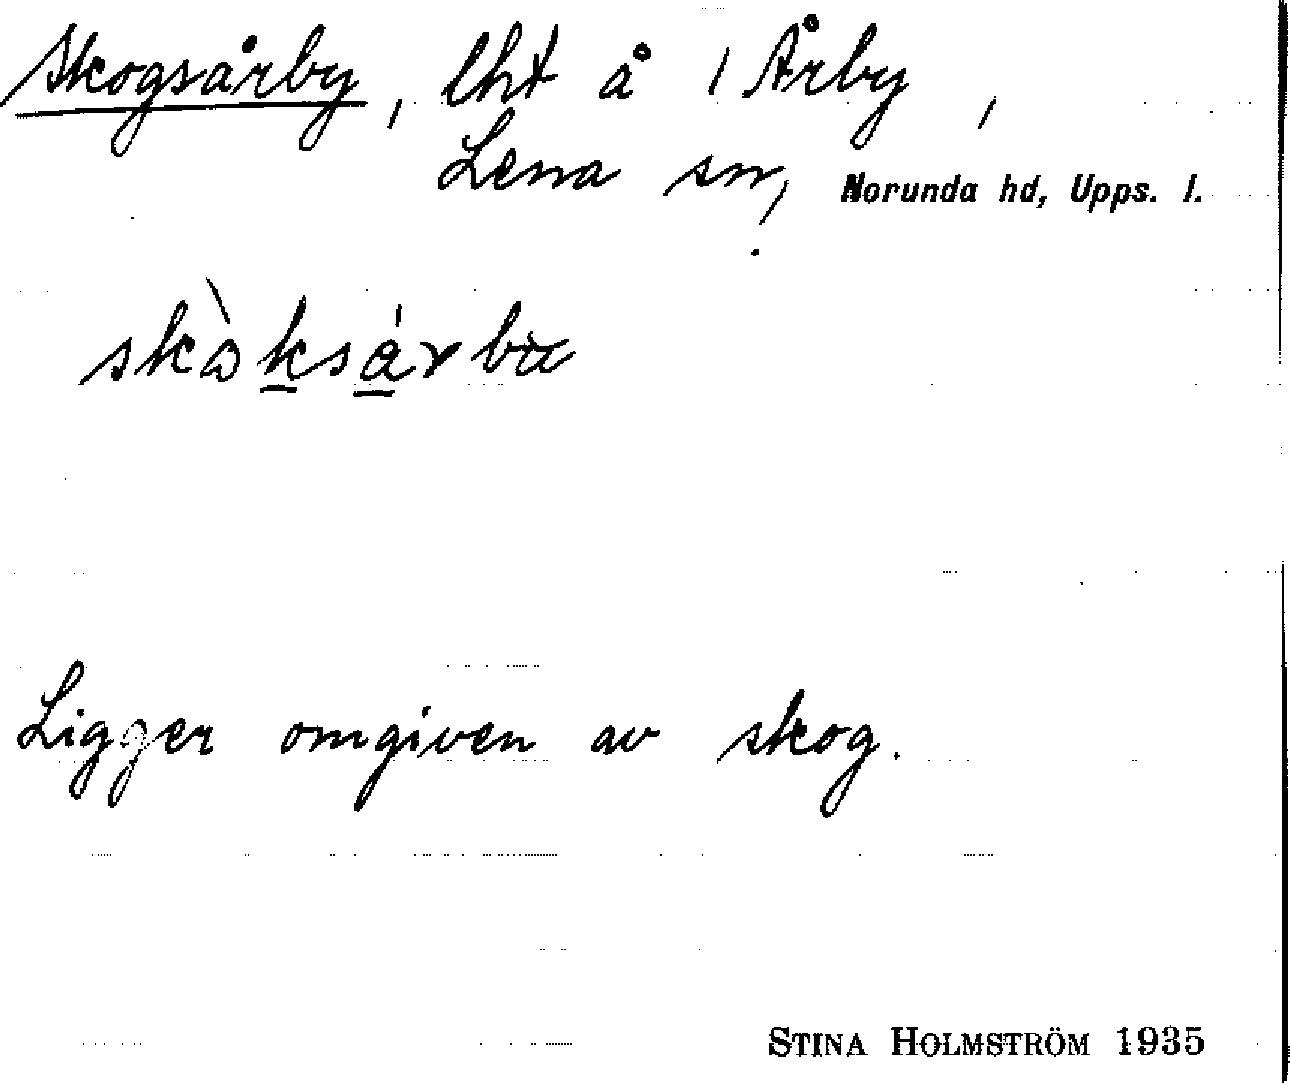 Skogsårby, lht å 1 Årby,
Lena sn, Norunda hd, Upps. l.
Ligger omgiven av skog.
STINA HOLMSTRÖM 1935